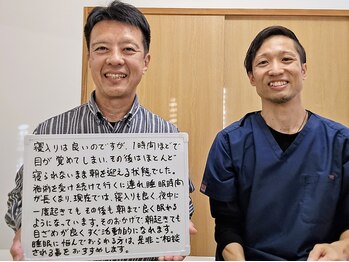 寝入りは良いのですが、1時間ほどで
目が覚めてしまい、その後はほとんど
寝られないまま朝を迎える状態でした。
施術を受け続けて行くに連れ、睡眠時間
が長くなり、現在では、寝入りも良く、夜中に
一度起きても、その後も朝まで良く眠れる
ようになっています。そのおかげで、朝起きても
目ざめが良くすぐに活動的になれます。
睡眠に悩んでおられる方は、是非ご相談
される事をおすすめします。